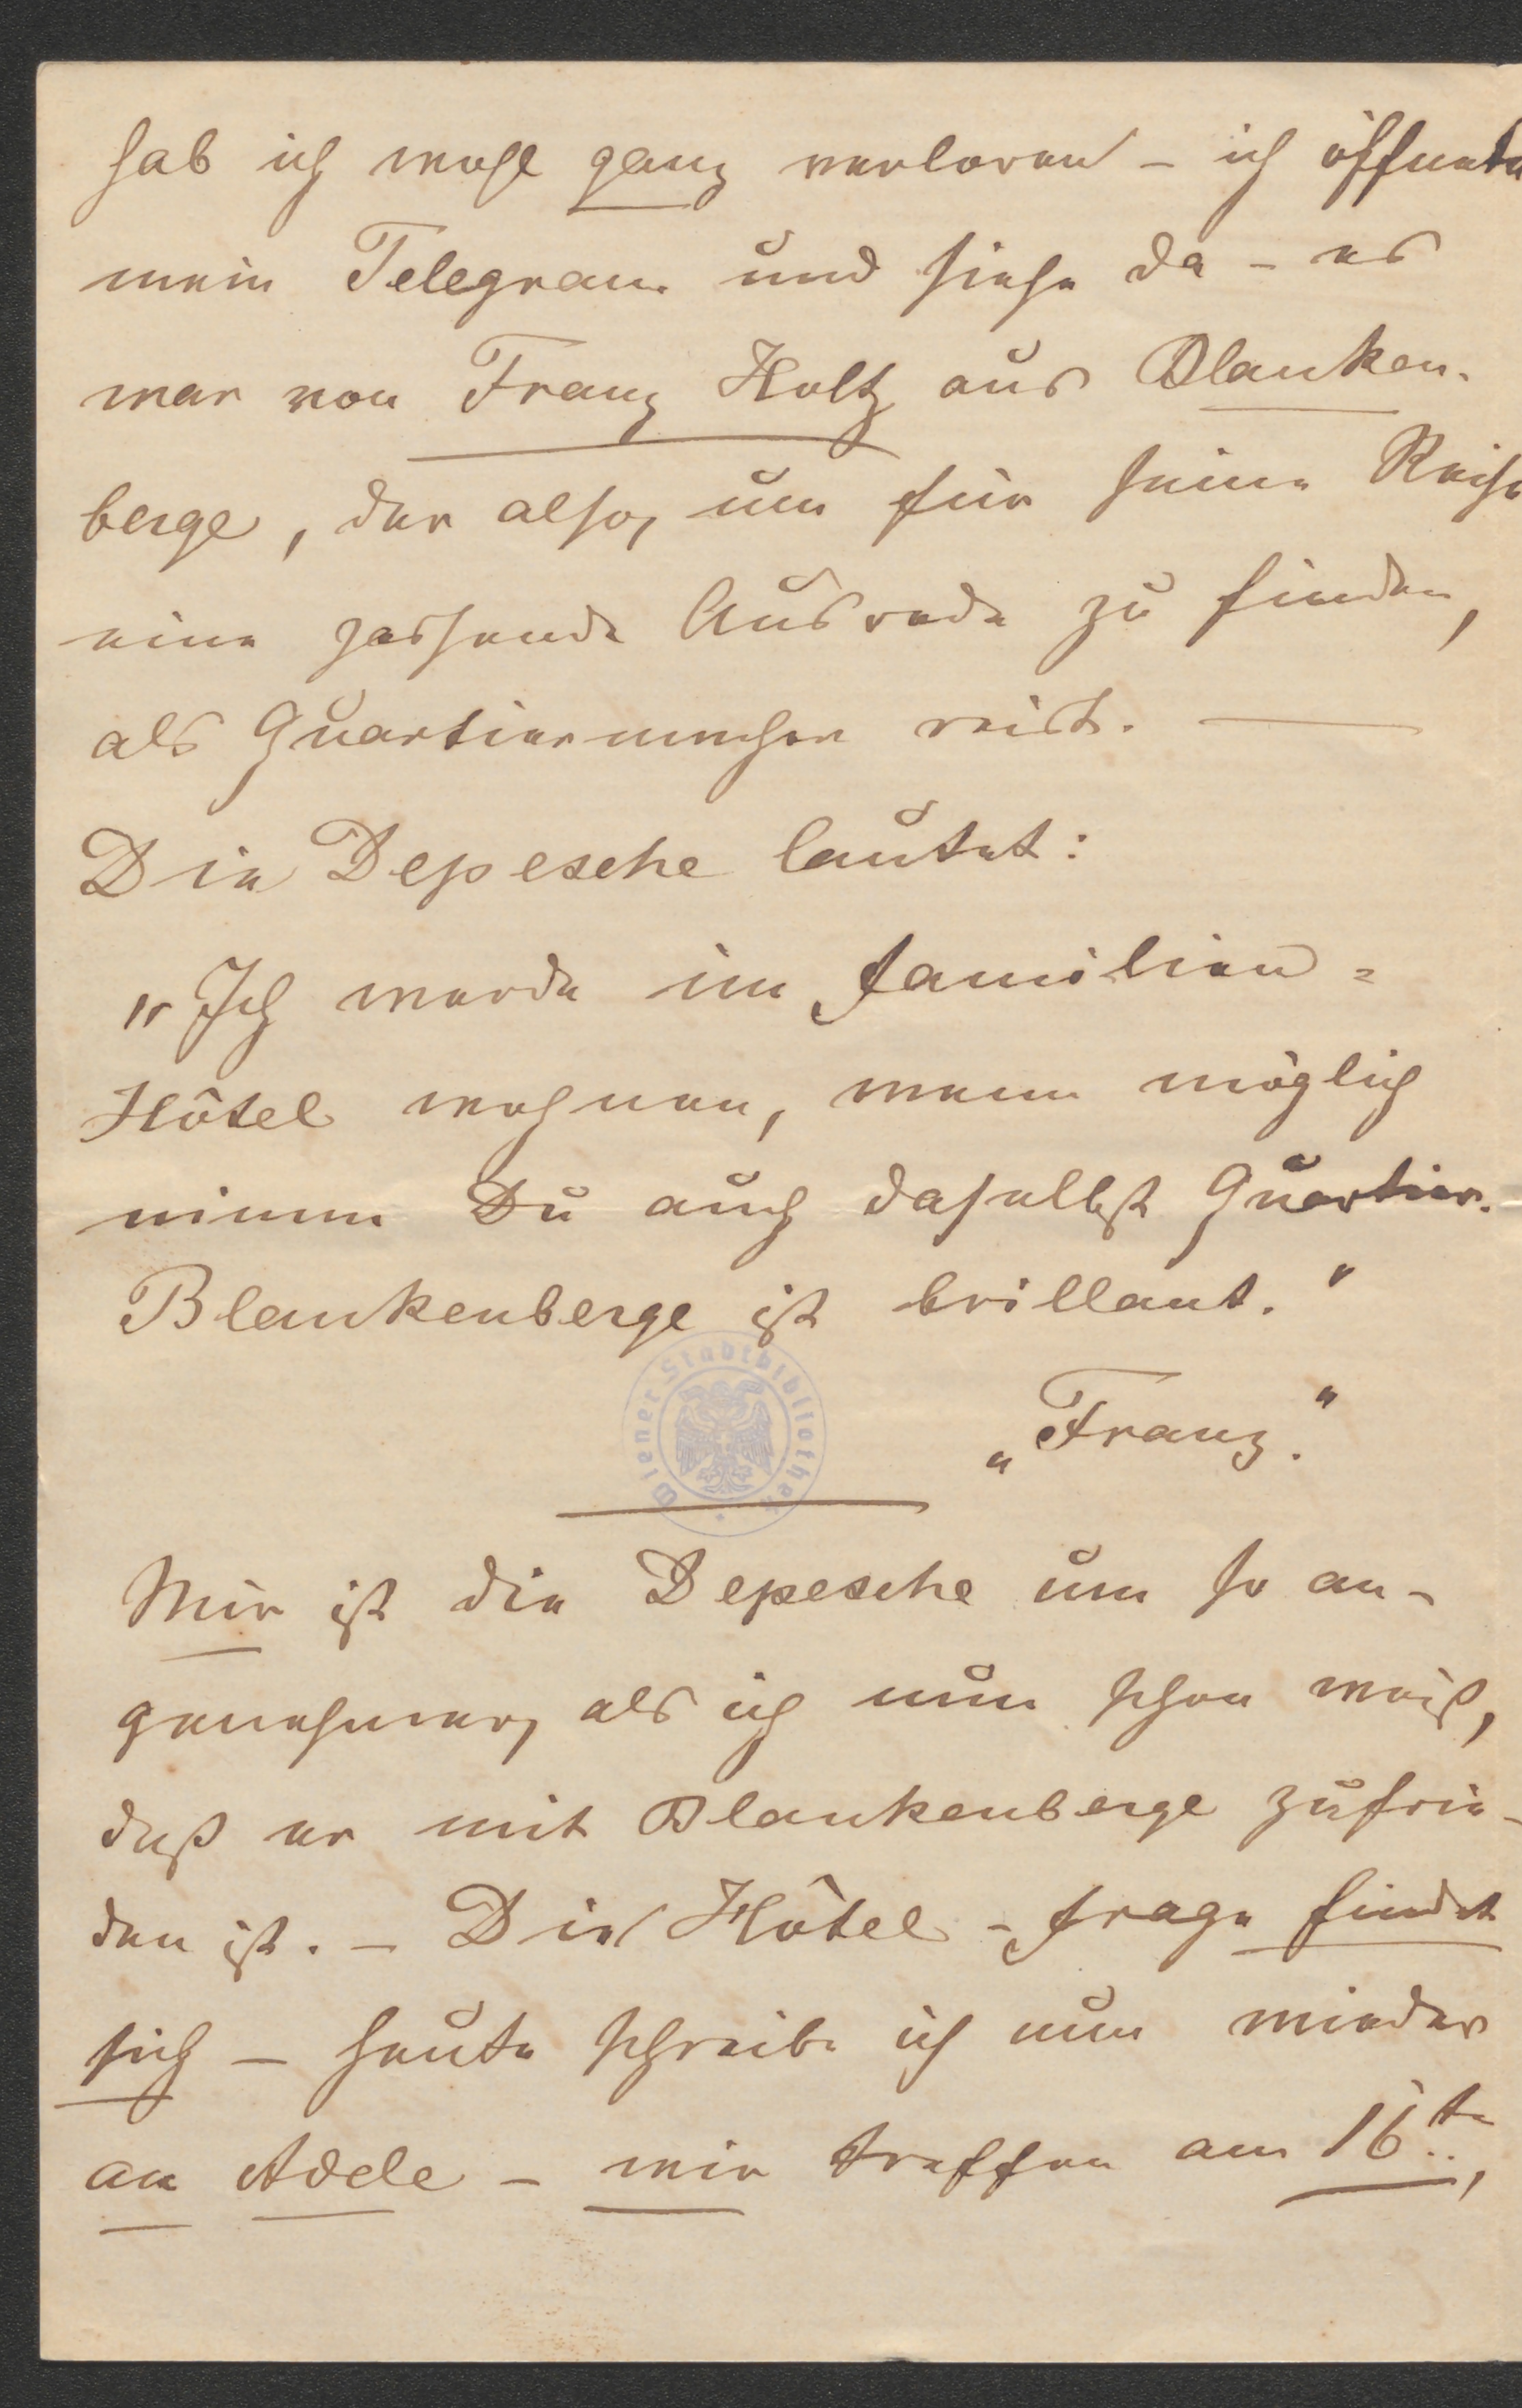 hab ich wohl ganz verloren – ich öffnete
mein Telegram und siehe da – es
war von Franz Holtz aus Blanken-
berge, der also, um für seine Reise
eine passende Ausrede zu finden,
als Quartiermacher reist. —
Die Depesche lautet:
„Ich werde im Familien=
Hôtel wohnen, wenn möglich
nimm Du auch daselbst Quartier.
Blankenberge ist brillant."
„Franz."
Wiener Stadtbibliothek
Mir ist die Depesche um so an-
genehmer, als ich nun schon weiß,
daß er mit Blankenberge zufrie-
den ist. – Die Hôtel-frage findet
sich – heute schreibe ich nun wieder
an Adele – wir treffen am 16te,